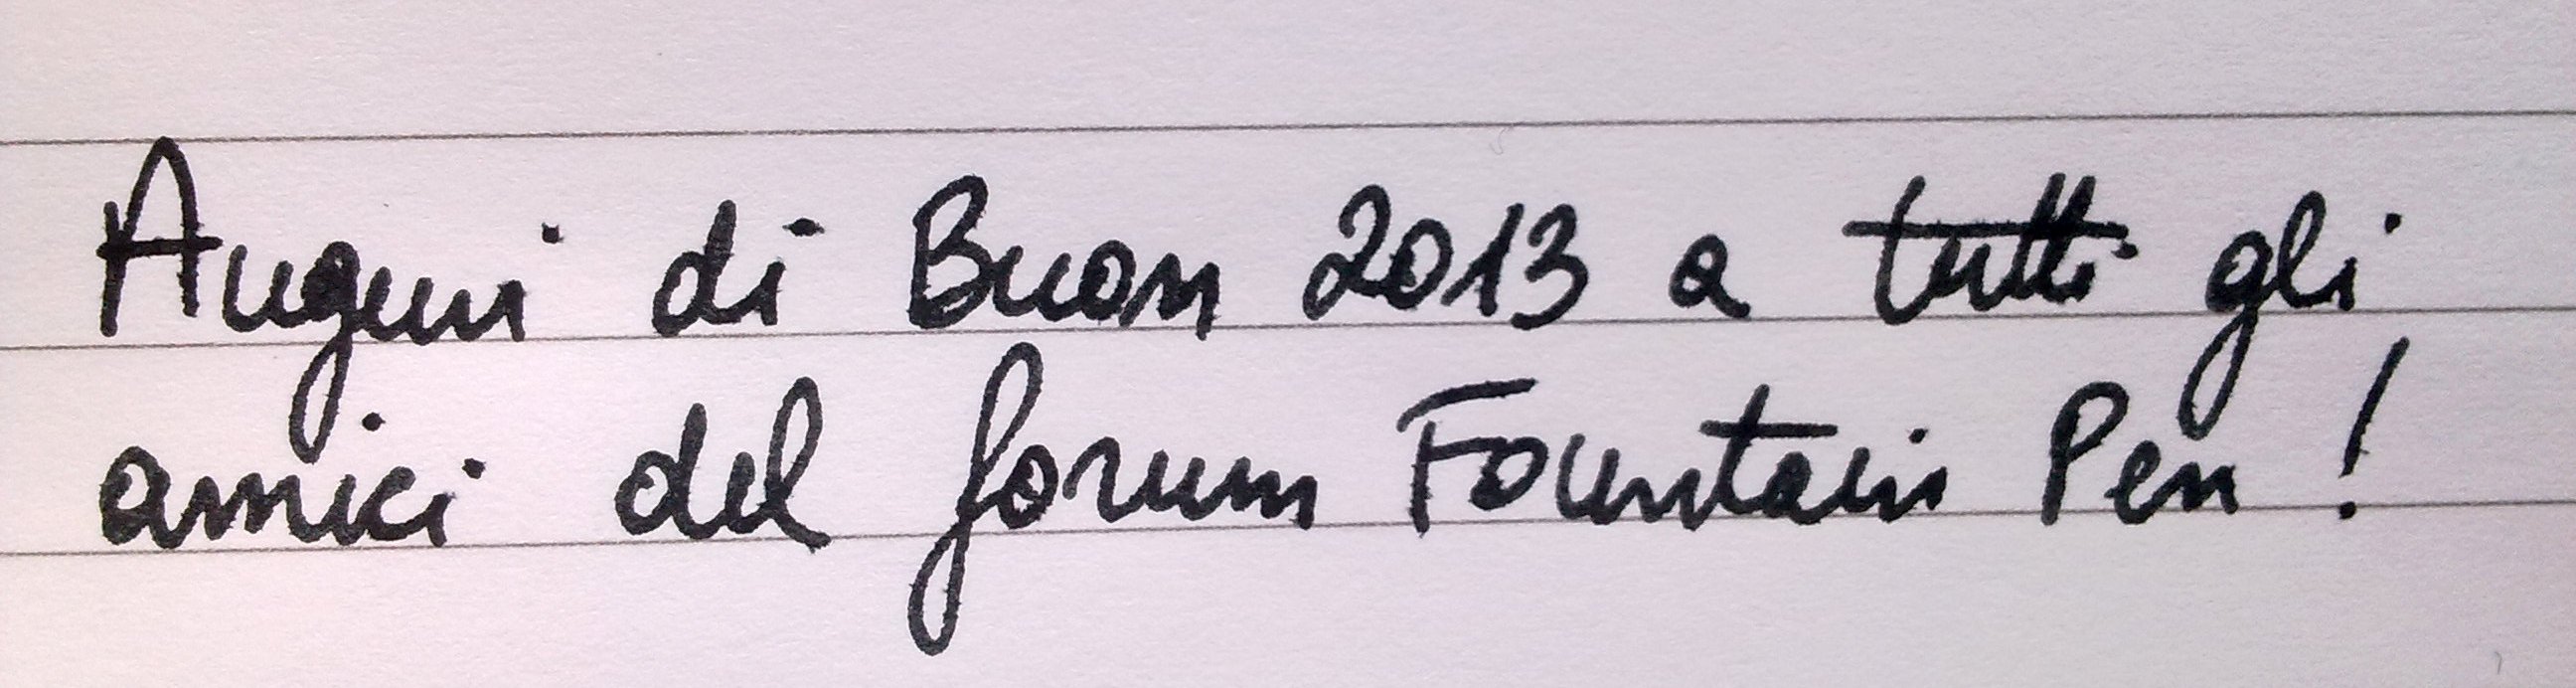 Auguri di Buon 2013 a tutti gli
amici del forum Fountain Pen!